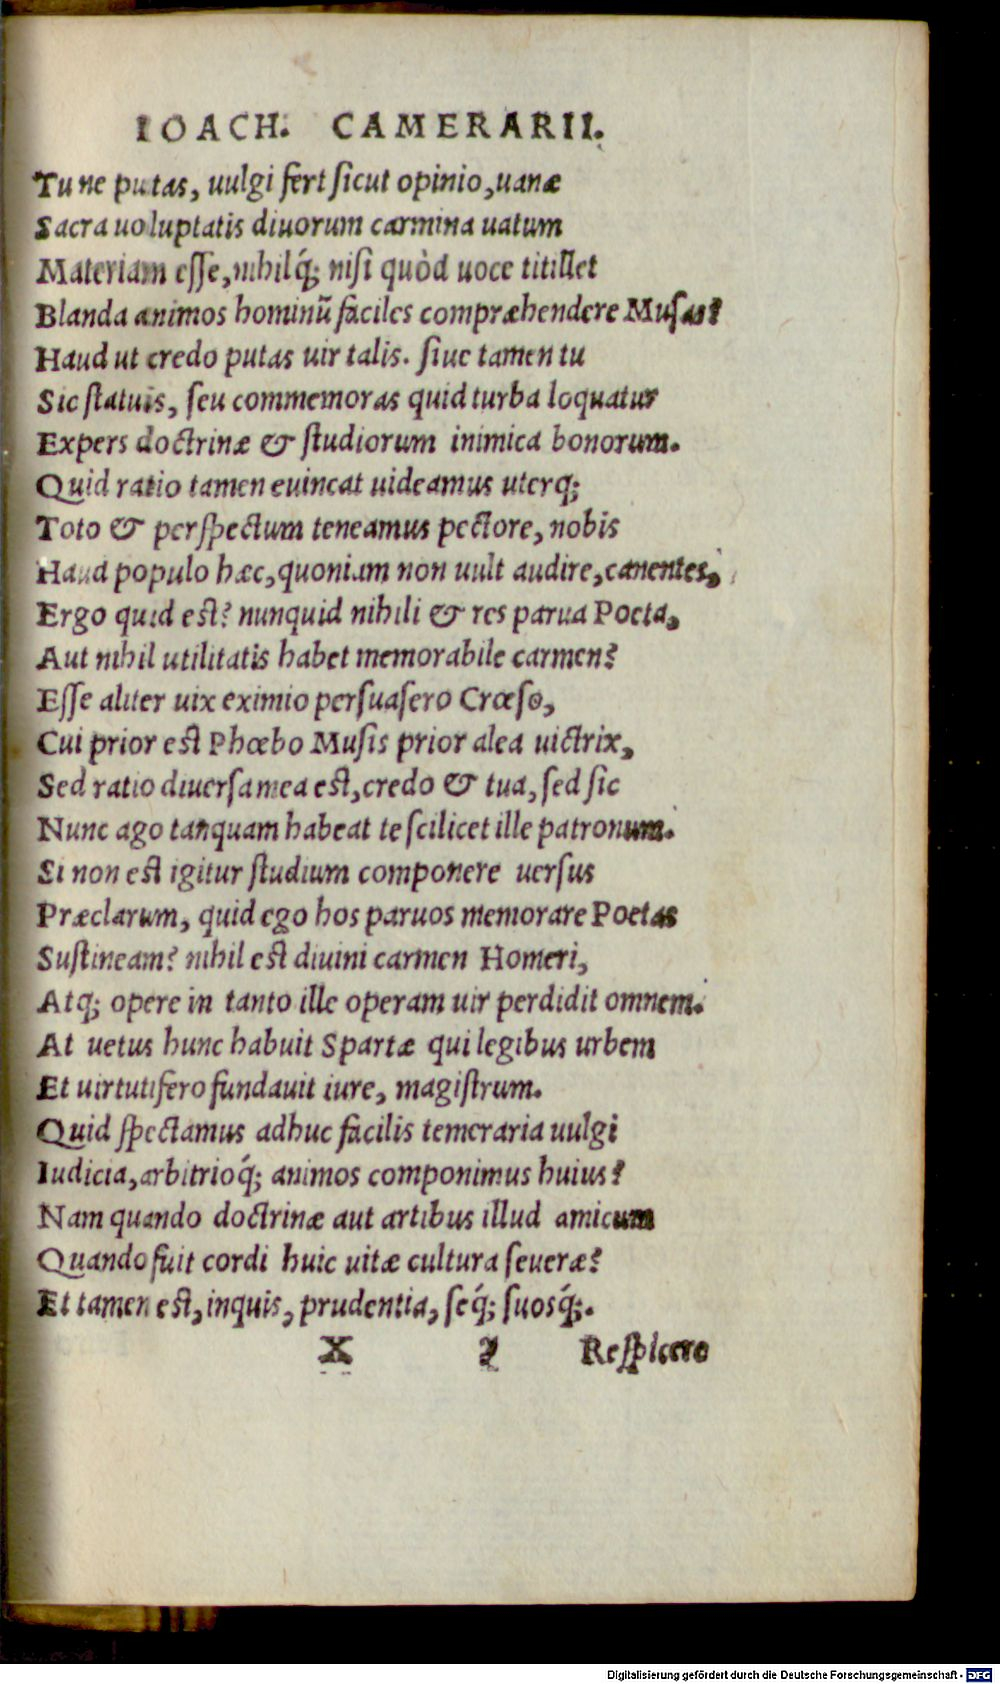 IOACH. CAMERARII.
Tu ne putas, uulgi fert sicut opinio, uanæ
Sacra uoluptatis diuorum carmina uatum
Materiam esse, nihilq́; nisi quòd uoce titillet
Blanda animos hominū faciles compræhendere Musas?
Haud ut credo putas uir talis. siue tamen tu
Sic statuis, seu commemoras quid turba loquatur
Expers doctrinæ & studiorum inimica bonorum.
Quid ratio tamen euincat uideamus uterq;
Toto & perspectum teneamus pectore, nobis
Haud populo hæc, quoniam non uult audire, canentes,
Ergo quid est? nunquid nihili & res parua Poeta,
Aut nihil utilitatis habet memorabile carmen?
Esse aliter uix eximio persuasero Crœso,
Cui prior est Phœbo Musis prior alea uictrix,
Sed ratio diuersa mea est, credo & tua, sed sic
Nunc ago tanquam habeat te scilicet ille patronum.
Si non est igitur studium componere uersus
Præclarum, quid ego hos paruos memorare Poetas
Sustineam? nihil est diuini carmen Homeri,
Atq; opere in tanto ille operam uir perdidit omnem.
At uetus hunc habuit Spartæ qui legibus urbem
Et uirtutifero fundauit iure, magistrum.
Quid spectamus adhuc facilis temeraria uulgi
Iudicia, arbitrioq́; animos componimus huius?
Nam quando doctrinæ aut artibus illud amicum
Quando fuit cordi huic uitæ cultura seueræ?
Et tamen est, inquis, prudentia, seq́; suosq́;.
X 2 Respicere
Digitalisierung gefördert durch die Deutsche Forschungsgemeinschaft - DFG